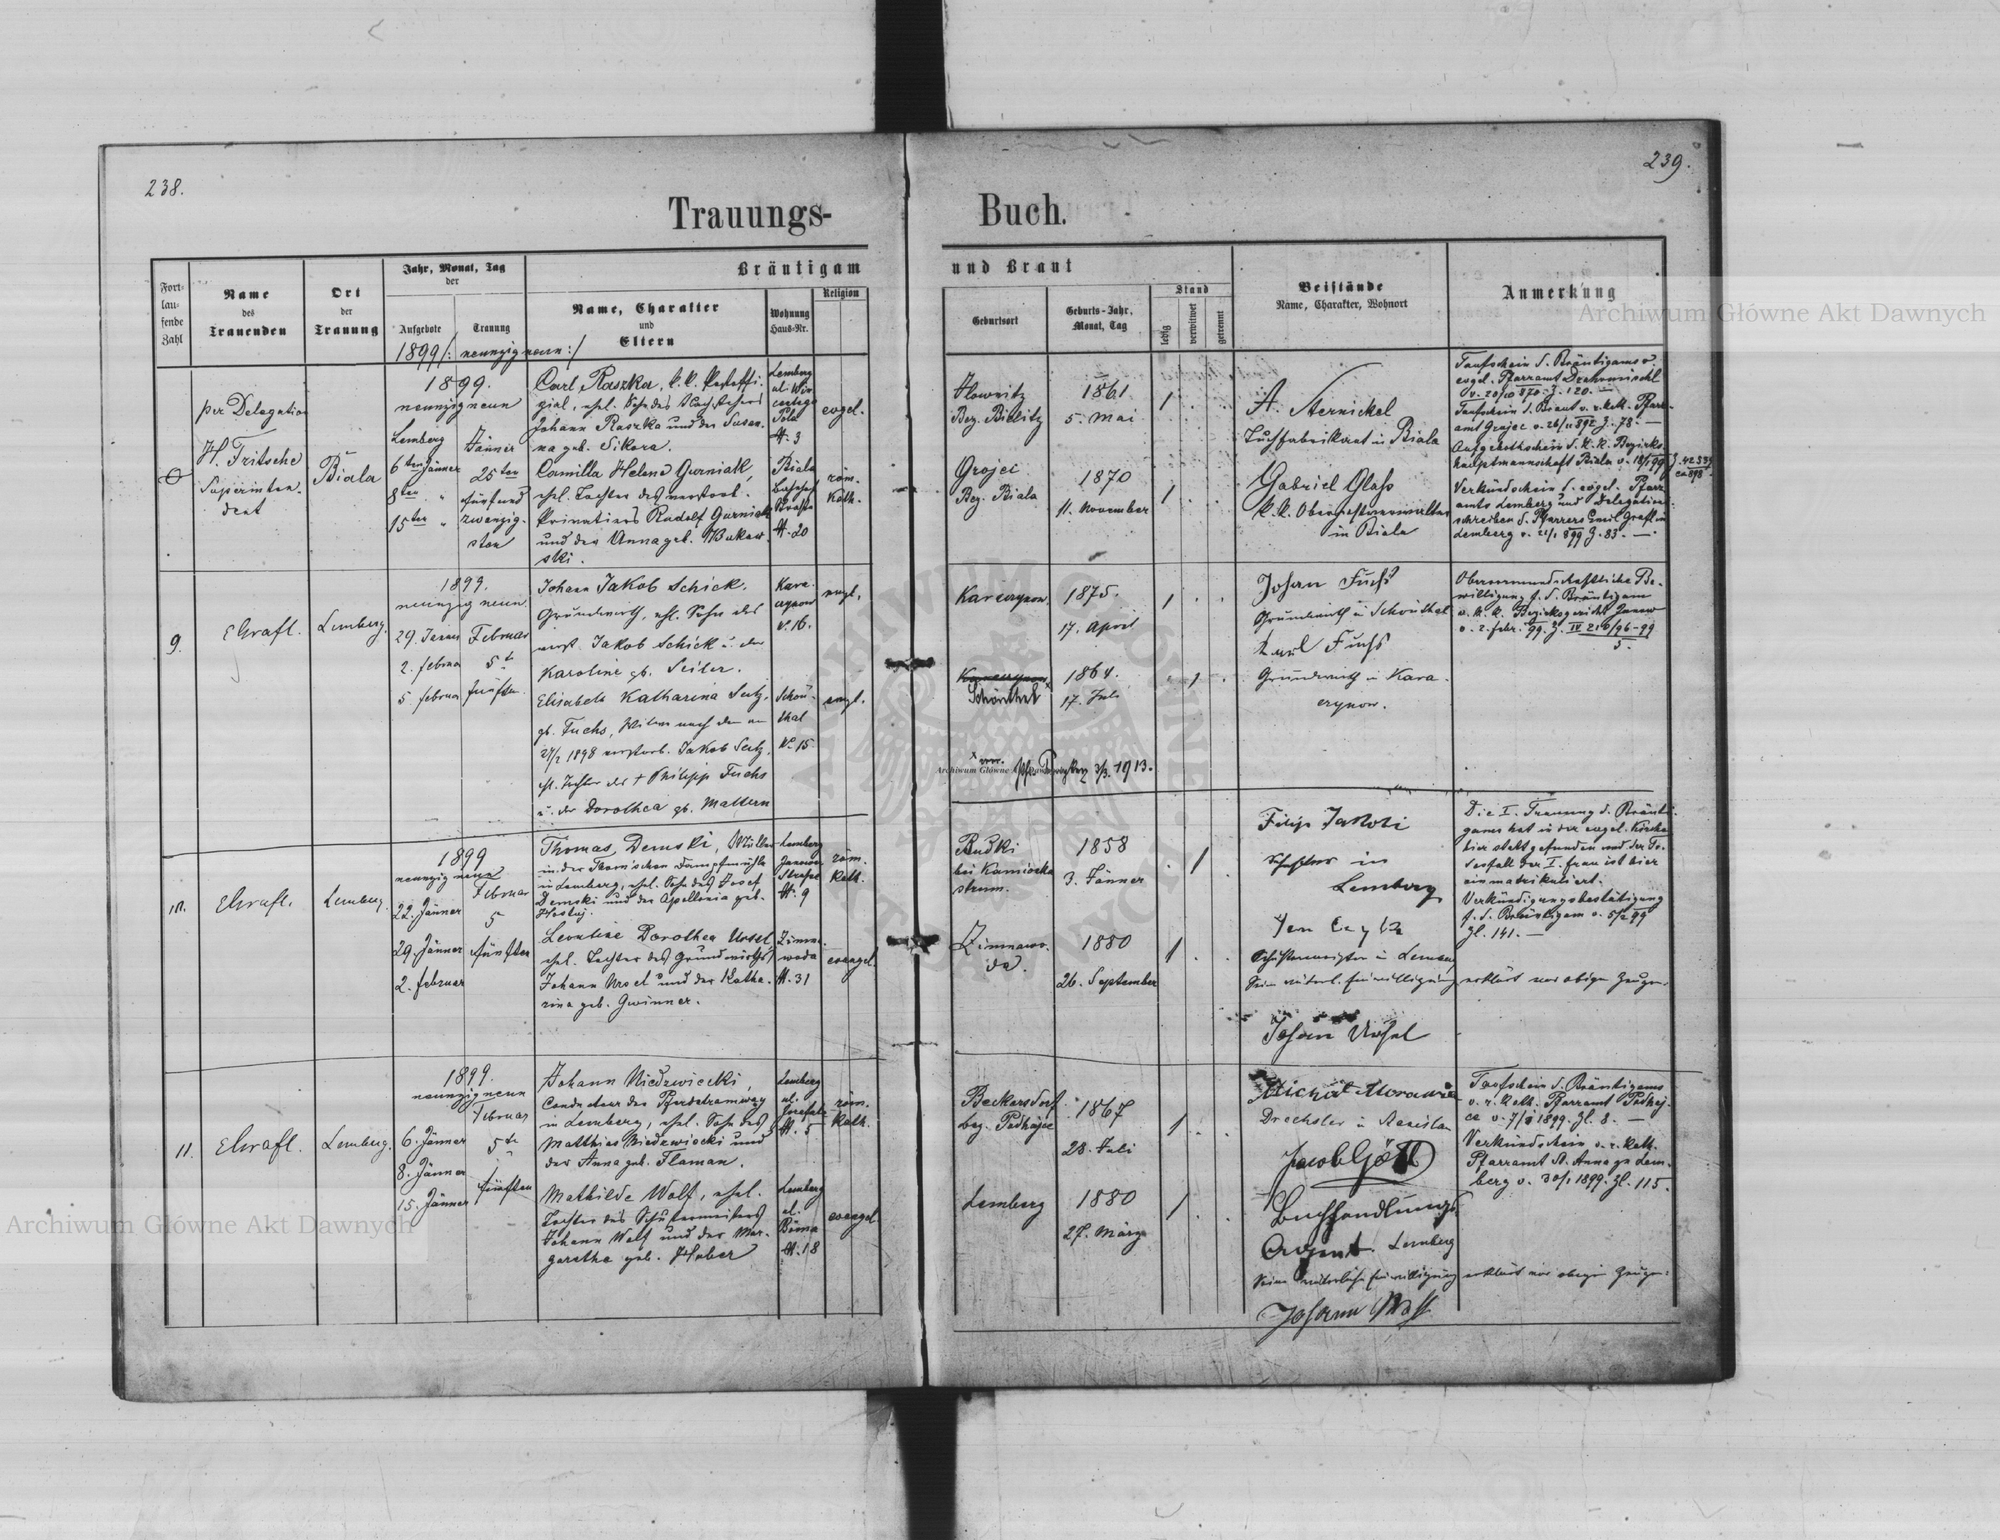 238.
239.
Trauungs-
Buch.
Fort-
lau-
fende
Zahl
Name
des
Trauenden
Ort
der
Trauung
Jahr, Monat, Tag
der
Aufgebote
Trauung
Bräutigam
und Braut
Name, Charakter
und
Eltern
Wohnung
Haus-Nr.
Religion
Geburtsort
Geburts-Jahr,
Monat, Tag
Stand
ledig
verwitwet
getrennt
Beistände
Name, Charakter, Wohnort
Anmerkung
1899 /: neunzig neun :/
per Delegation
H. Fritsche
Superinten-
dent
Biala
1899.
neunzig neun
Lemberg
6ten Jänner
8ten "
15ten "
Jänner
25ten
fünfund
zwanzig-
sten
Carl Raszka, k.k. Postoffi-
zial, ehel. Sohn des
Johann Raszka und der Susan-
na geb. Sikora.
Camilla Helene Gurniak,
ehel. Tochter des verstorb.
Privatiers Rudolf Gurniak
und der Anna geb. Bukow-
ski.
Lemberg
N. 3
Biala
N. 20
evgel.
röm.
Kath.
Bez. Bielitz
1861
5. Mai
1
Grojec
Bez. Biala
1870
11. November
1
A. Sternickel
Tuchfabrikant in Biala
Gabriel Glass
k.k. Oberpostverwalter
in Biala
Taufschein d. Bräutigams v.
evgel. Pfarramt
Taufschein d. Braut v. r. kath. Pfarr-
amt Grojec v. 26/11 892 Z. 78. —
Aufgebothschein d. k.k. Bezirks-
hauptmannschaft Biala v. 18/1 99
Verkündschein d. evgel. Pfarr-
amts Lemberg und Delegations-
schreiben d. Pfarrers Emil Grafl in
Lemberg v. 21/1 899 Z. 83. —
9.
EGrafl.
Lemberg.
1899.
neunzig neun.
29. Jenner
2. Februar
5. Februar
Februar
5t
fünften
Johann Jakob Schick.
Grundwirth, ehl. Sohn des
verst. Jakob Schick u. der
Karoline gb. Seiler.
Elisabeth Katharina Seitz,
gb. Fuchs, Witwe nach dem am
27/2 1898 verstorb. Jakob Seitz,
ehl. Tochter des + Philipp Fuchs
u. der Dorothea gb. Mattern
Kara-
czynow
N. 16.
Schön-
thal
N. 15
evgl.
evgl.
Karaczynow.
1875.
17. April
1
Karaczynow x
Schönthal
1864.
17. Juli
1
3/3. 1913.
Johan Fuchs
Grundwirth in Schönthal
Karl Fuchs
Grundwirth in Kara-
czynow.
Obervormundschaftliche Be-
willigung f. d. Bräutigam
v. k.k. Bezirksgericht Janow
v. 2. Febr. 99. Z. IV 216/96-99
5.
10.
EGrafl.
Lemberg.
1899
neunzig neun
22. Jänner
29. Jänner
2. Februar
Februar
5
fünften
Thomas Demski, Müller
in der Thom'schen Dampfmühle
in Lemberg, ehel. Sohn des Josef
Demski und der Apollonia geb.
Leontine Dorothea Ursel,
ehel. Tochter des Grundwirths
Johann Ursel und der Katha-
rina geb. Gwinner.
Lemberg
Janower
Strasse
N. 9
Zimna-
woda
N. 31
röm.
Kath.
evangel.
Rudki
bei Kamionka
strum.
1858
3. Jänner
1
Zimnawo-
da.
1880
26. September
1
Filip Jakobi
in
Lemberg
Schustermeister in Lemberg
Seine väterl. Einwilligung erklärt vor obigen Zeugen:
Johan Ursel
Die I. Trauung d. Bräuti-
gams hat in der evgel. Kirche
hier stattgefunden und der To-
desfall der I. Frau ist hier
einmatrikuliert.
Verkündigungsbestätigung
f. d. Bräutigam v. 5/2 99
Zl. 141. —
11.
EGrafl.
Lemberg.
1899.
neunzig neun
6. Jänner
8. Jänner
15. Jänner
Februar
5te
fünften
Johann Niedzwiecki,
Conducteur der Pferdetramway
in Lemberg, ehel. Sohn des
Matthias Niedzwiecki und
der Anna geb. Flaman.
Mathilde Wolf, ehel.
Tochter des Schustermeisters
Johann Wolf und der Mar-
garetha geb. Huber
Lemberg
ul.
N. 5
Lemberg
ul.
Böma
N. 18
röm.
Kath.
evangel.
Beckersdorf
bez. Podhajce
1867
28. Juli
1
Lemberg
1880
27. März
1
Michał Morawie
Drechsler in Stanislau
Jacob Göttl
Buchhandlungs
Agent. Lemberg
Seine väterliche Einwilligung erklärt vor obigen Zeugen:
Johann Wolf
Taufschein d. Bräutigams
v. r. kath. Pfarramt Podhaj-
ce v. 7/1 1899. Zl. 8. —
Verkündschein v. r. kath.
Pfarramt St. Anna zu Lem-
berg v. 30/1 1899. Zl. 115.
Archiwum Główne Akt Dawnych
Archiwum Główne Akt Dawnych